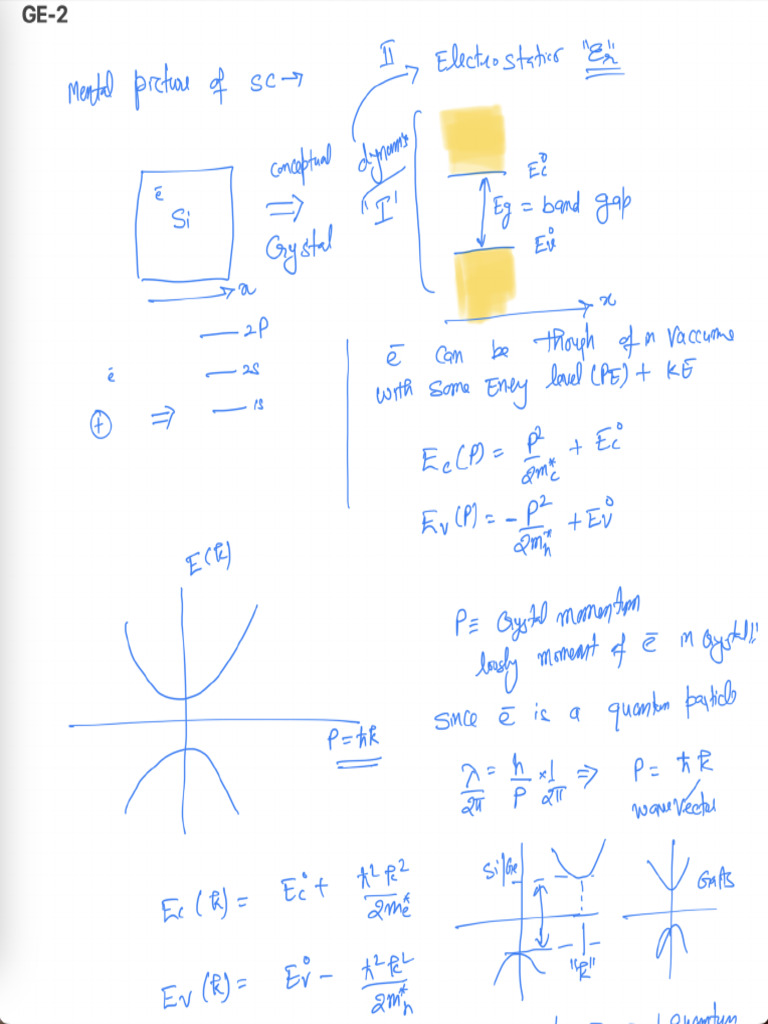 GE-2
Mental picture of SC →
II Electrostatics "εr"
ē
Si
x
conceptual
⇒
Crystal
dynamics
"I"
Ec°
Eg = band gap
Ev°
x
2P
ē 2S
⊕ ⇒ 1S
ē can be though of in vaccume
with some Eney level (PE) + KE
Ec(P) = P²/2mc* + Ec°
Ev(P) = - P²/2mh* + Ev°
E(k)
P = ħk
P ≡ Crystal momentum
loosly moment of ē in crystal!!
since ē is a quantum particle
λ/2π = h/P × 1/2π ⇒ P = ħk
wavevector
Ec(k) = Ec° + ħ²k²/2me*
Ev(k) = Ev° - ħ²k²/2mh*
Si/Ge
"k"
GaAs
quantum